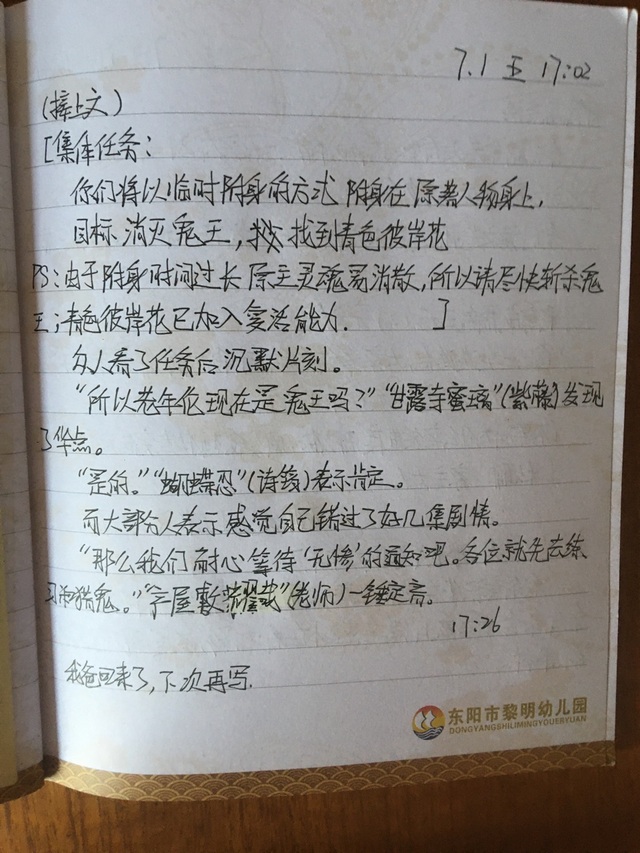 7.1 五 17:02
(接上文)
[集体任务:
你们将以临时附身的方式 附身在原著人物身上,
目标 消灭鬼王, 找到青色彼岸花
PS:由于附身时间过长 原主灵魂易消散,所以请尽快斩杀鬼
王;青色彼岸花已加入复活能力. ]
众人看了任务后沉默片刻。
“所以老年伦现在是鬼王吗?”“甘露寺蜜璃”(紫藤)发现
了华点。
“是的。”“蝴蝶忍”(诗筱)表示肯定。
而大部分人表示感觉自己错过了好几集剧情。
“那么我们耐心等待‘无惨’的通知吧。各位就先去练
习和猎鬼。”“产屋敷耀哉”(老师)一锤定音。
17:26
我爸回来了,下次再写.
东阳市黎明幼儿园
DONGYANGSHILIMINGYOUERYUAN